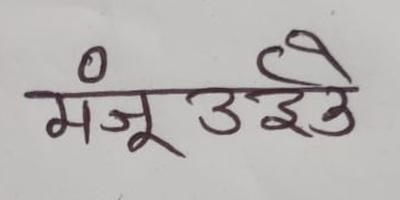 मंजू उईके